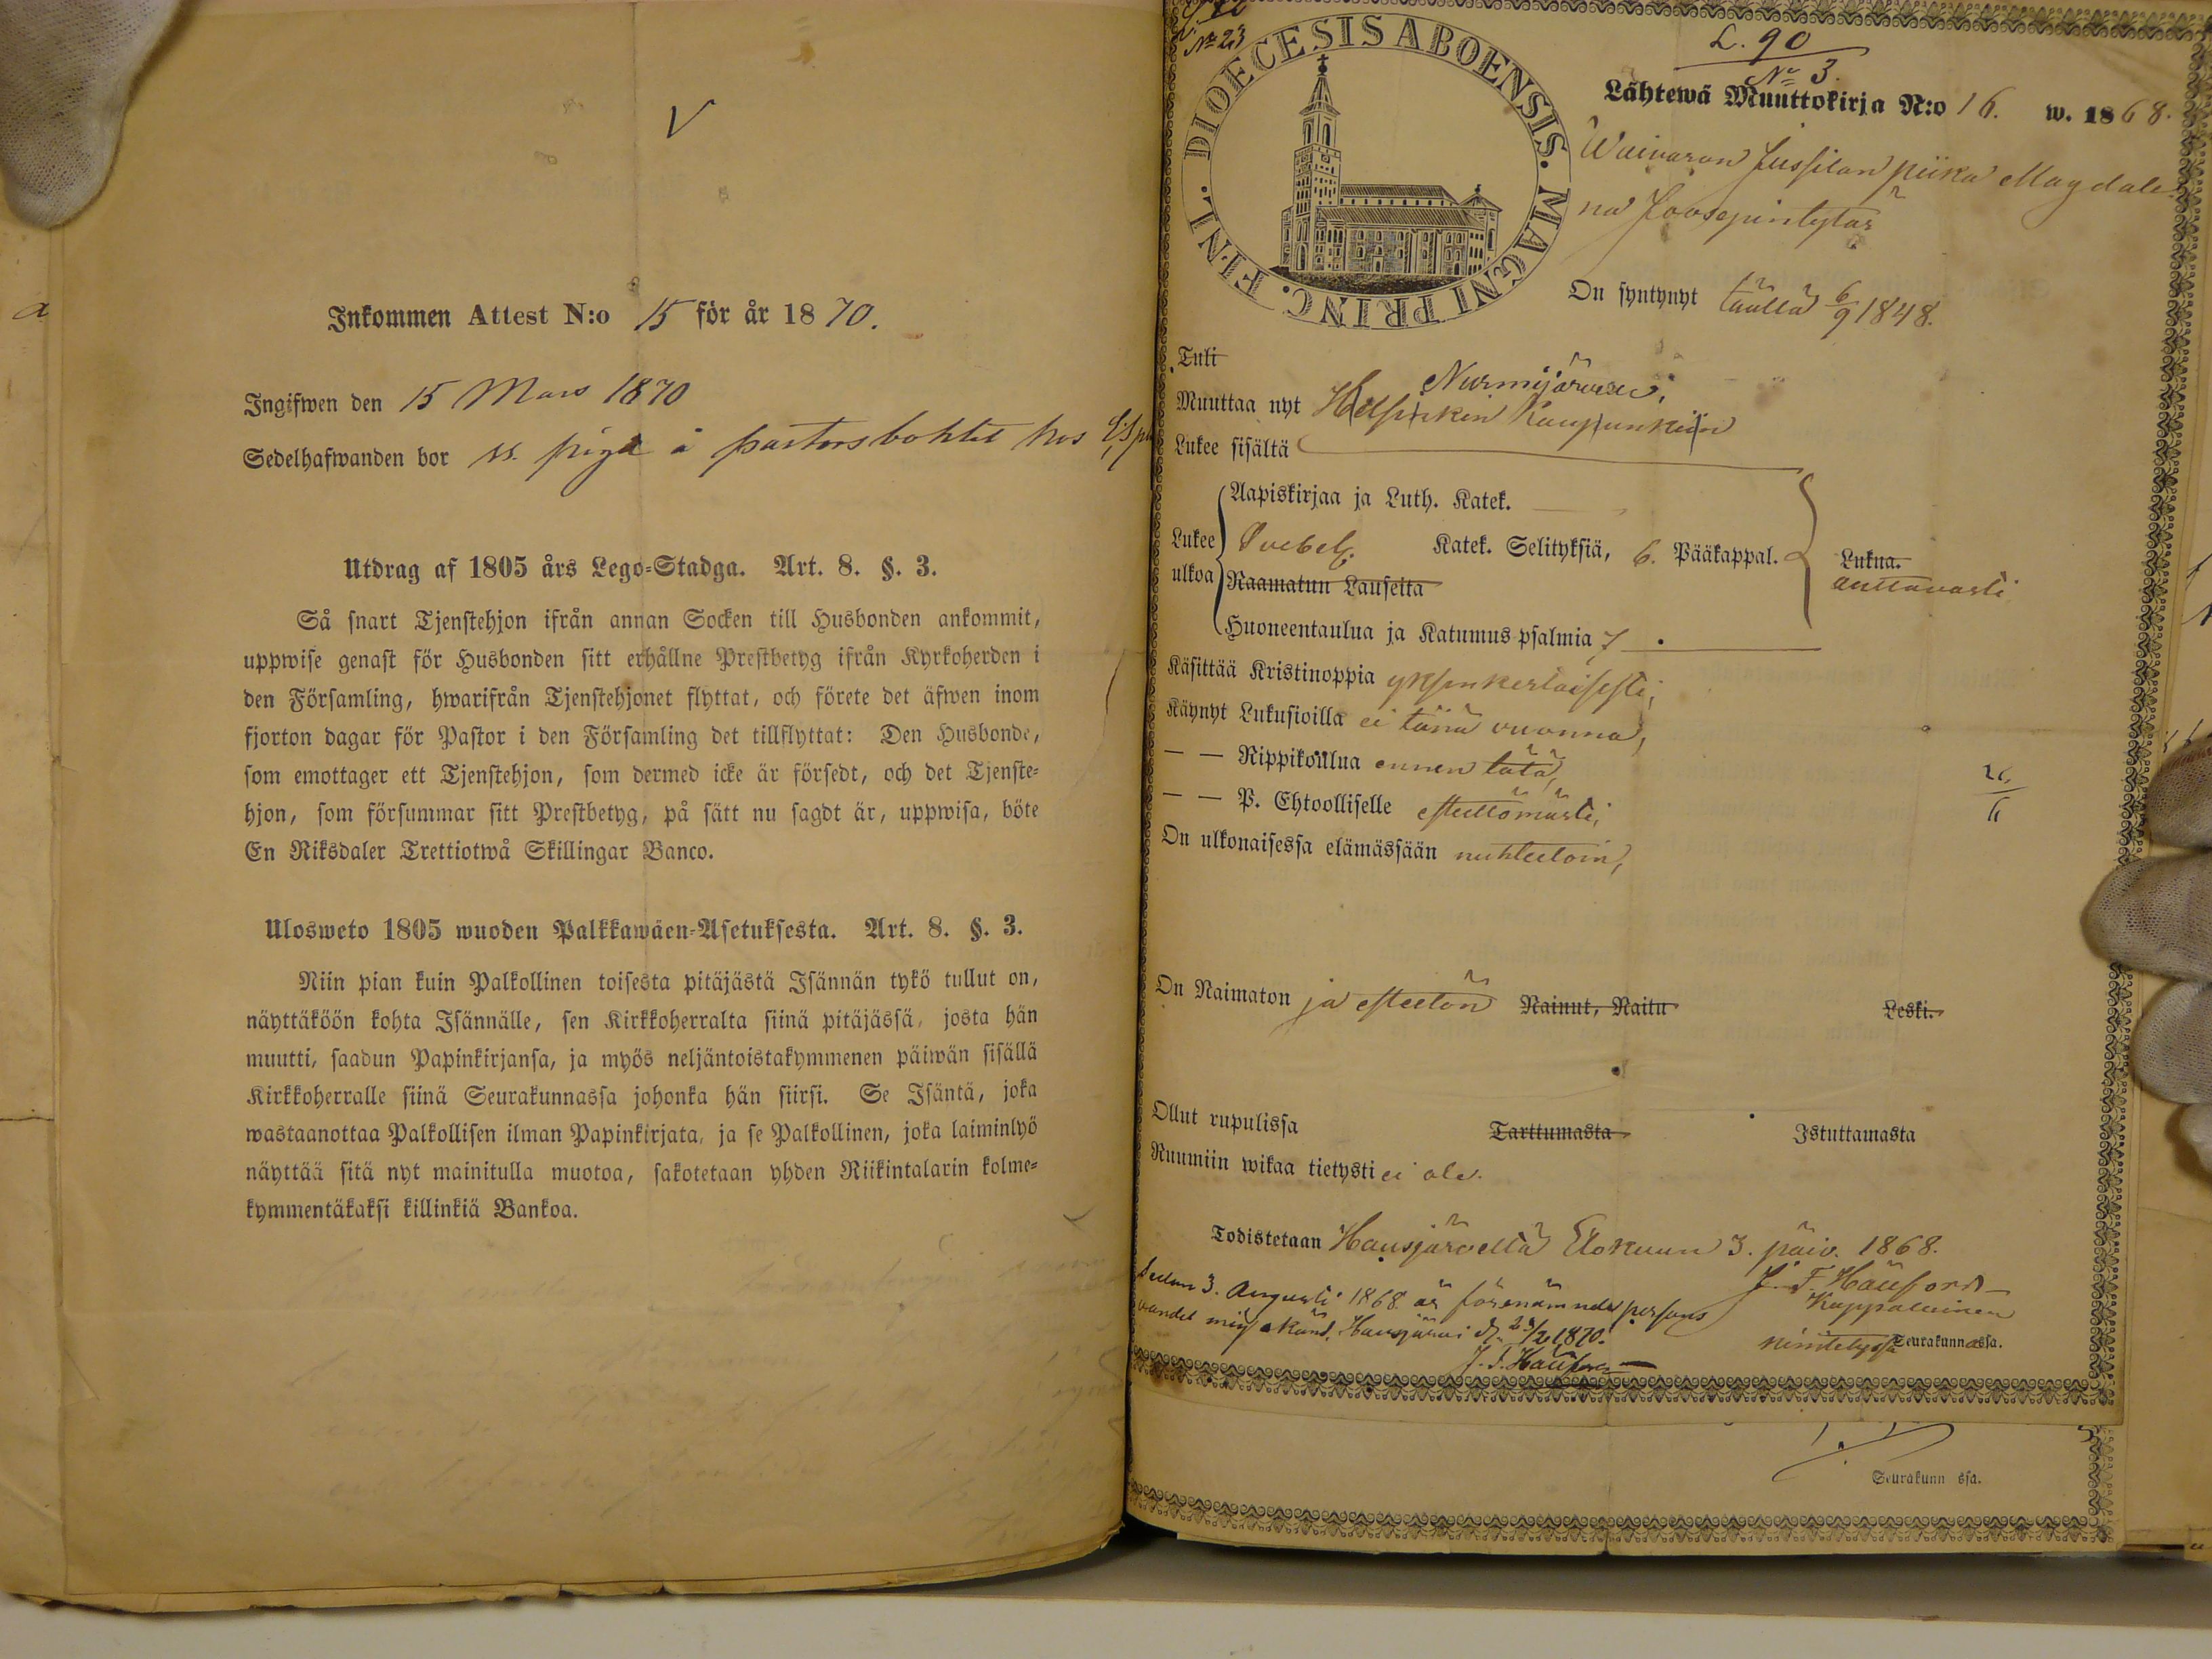 V
Inkommen Attest N:o 15 för år 1870.
Ingifwen den 15 Mars 1870
Sedelhafwanden bor ss. piga å pastorsbohlet hos
Utdrag af 1805 års Lego-Stadga. Art. 8. §. 3.
Så snart Tjenstehjon ifrån annan Socken till Husbonden ankommit,
uppwise genast för Husbonden sitt erhållne Prestbetyg ifrån Kyrkoherden i
den Församling, hwarifrån Tjenstehjonet flyttat, och förete det äfwen inom
fjorton dagar för Pastor i den Församling det tillflyttat: Den Husbonde,
som emottager ett Tjenstehjon, som dermed icke är försedt, och det Tjenste-
hjon, som försummar sitt Prestbetyg, på sätt nu sagdt är, uppwisa, böte
En Riksdaler Trettiotwå Skillingar Banco.
Ulosweto 1805 wuoden Palkkawäen-Asetuksesta. Art. 8. §. 3.
Niin pian kuin Palkollinen toisesta pitäjästä Isännän tykö tullut on,
näyttäköön kohta Isännälle, sen Kirkkoherralta siinä pitäjässä, josta hän
muutti, saadun Papinkirjansa, ja myös neljäntoistakymmenen päiwän sisällä
Kirkkoherralle siinä Seurakunnassa johonka hän siirsi. Se Isäntä, joka
wastaanottaa Palkollisen ilman Papinkirjata, ja se Palkollinen, joka laiminlyö
näyttää sitä nyt mainitulla muotoa, sakotetaan yhden Riikintalarin kolme-
kymmentäkaksi killinkiä Bankoa.
No 23
DIOECESIS ABOENSIS. MAGNI PRINC. FINL.
L. 90
No 3.
Lähtewä Muuttokirja N:o 16. w. 1868.
Waiwaron Jussilan piika Magdale-
na Joosepintytär
On syntynyt täällä 6/9 1848.
Tuli
Nurmijärwi;
Muuttaa nyt Helsinkin Kaupunkiin
Lukee sisältä
Aapiskirjaa ja Luth. Katek.
Lukee ulkoa Svebel. Katek. Selityksiä, 6. Pääkappal.
Raamatun Lauseita
Lukna. auttavasti
Huoneentaulua ja Katumus-psalmia 7
Käsittää Kristinoppia yksinkertaisesti;
Käynyt Lukusioilla ei tänä vuonna,
— — Rippikoulua ennen tätä,
— — P. Ehtoolliselle esteettömästi;
On ulkonaisessa elämässään nuhteetoin,
On Naimaton ja esteetön Nainut, Naitu Leski.
Ollut rupulissa Tarttumasta Istuttamasta
Ruumiin wikaa tietysti ei ole.
Todistetaan Hausjärvellä Elokuun 3. päiv. 1868.
J. F. Häufors
Kappalainen
nimitetyssä Seurakunnassa.
Sedan 3. Augusti 1868 är förenämnde persons
vandel mig okänd. Hausjärvi d. 1870.
J. F. Häufors
Seurakunn ssa.